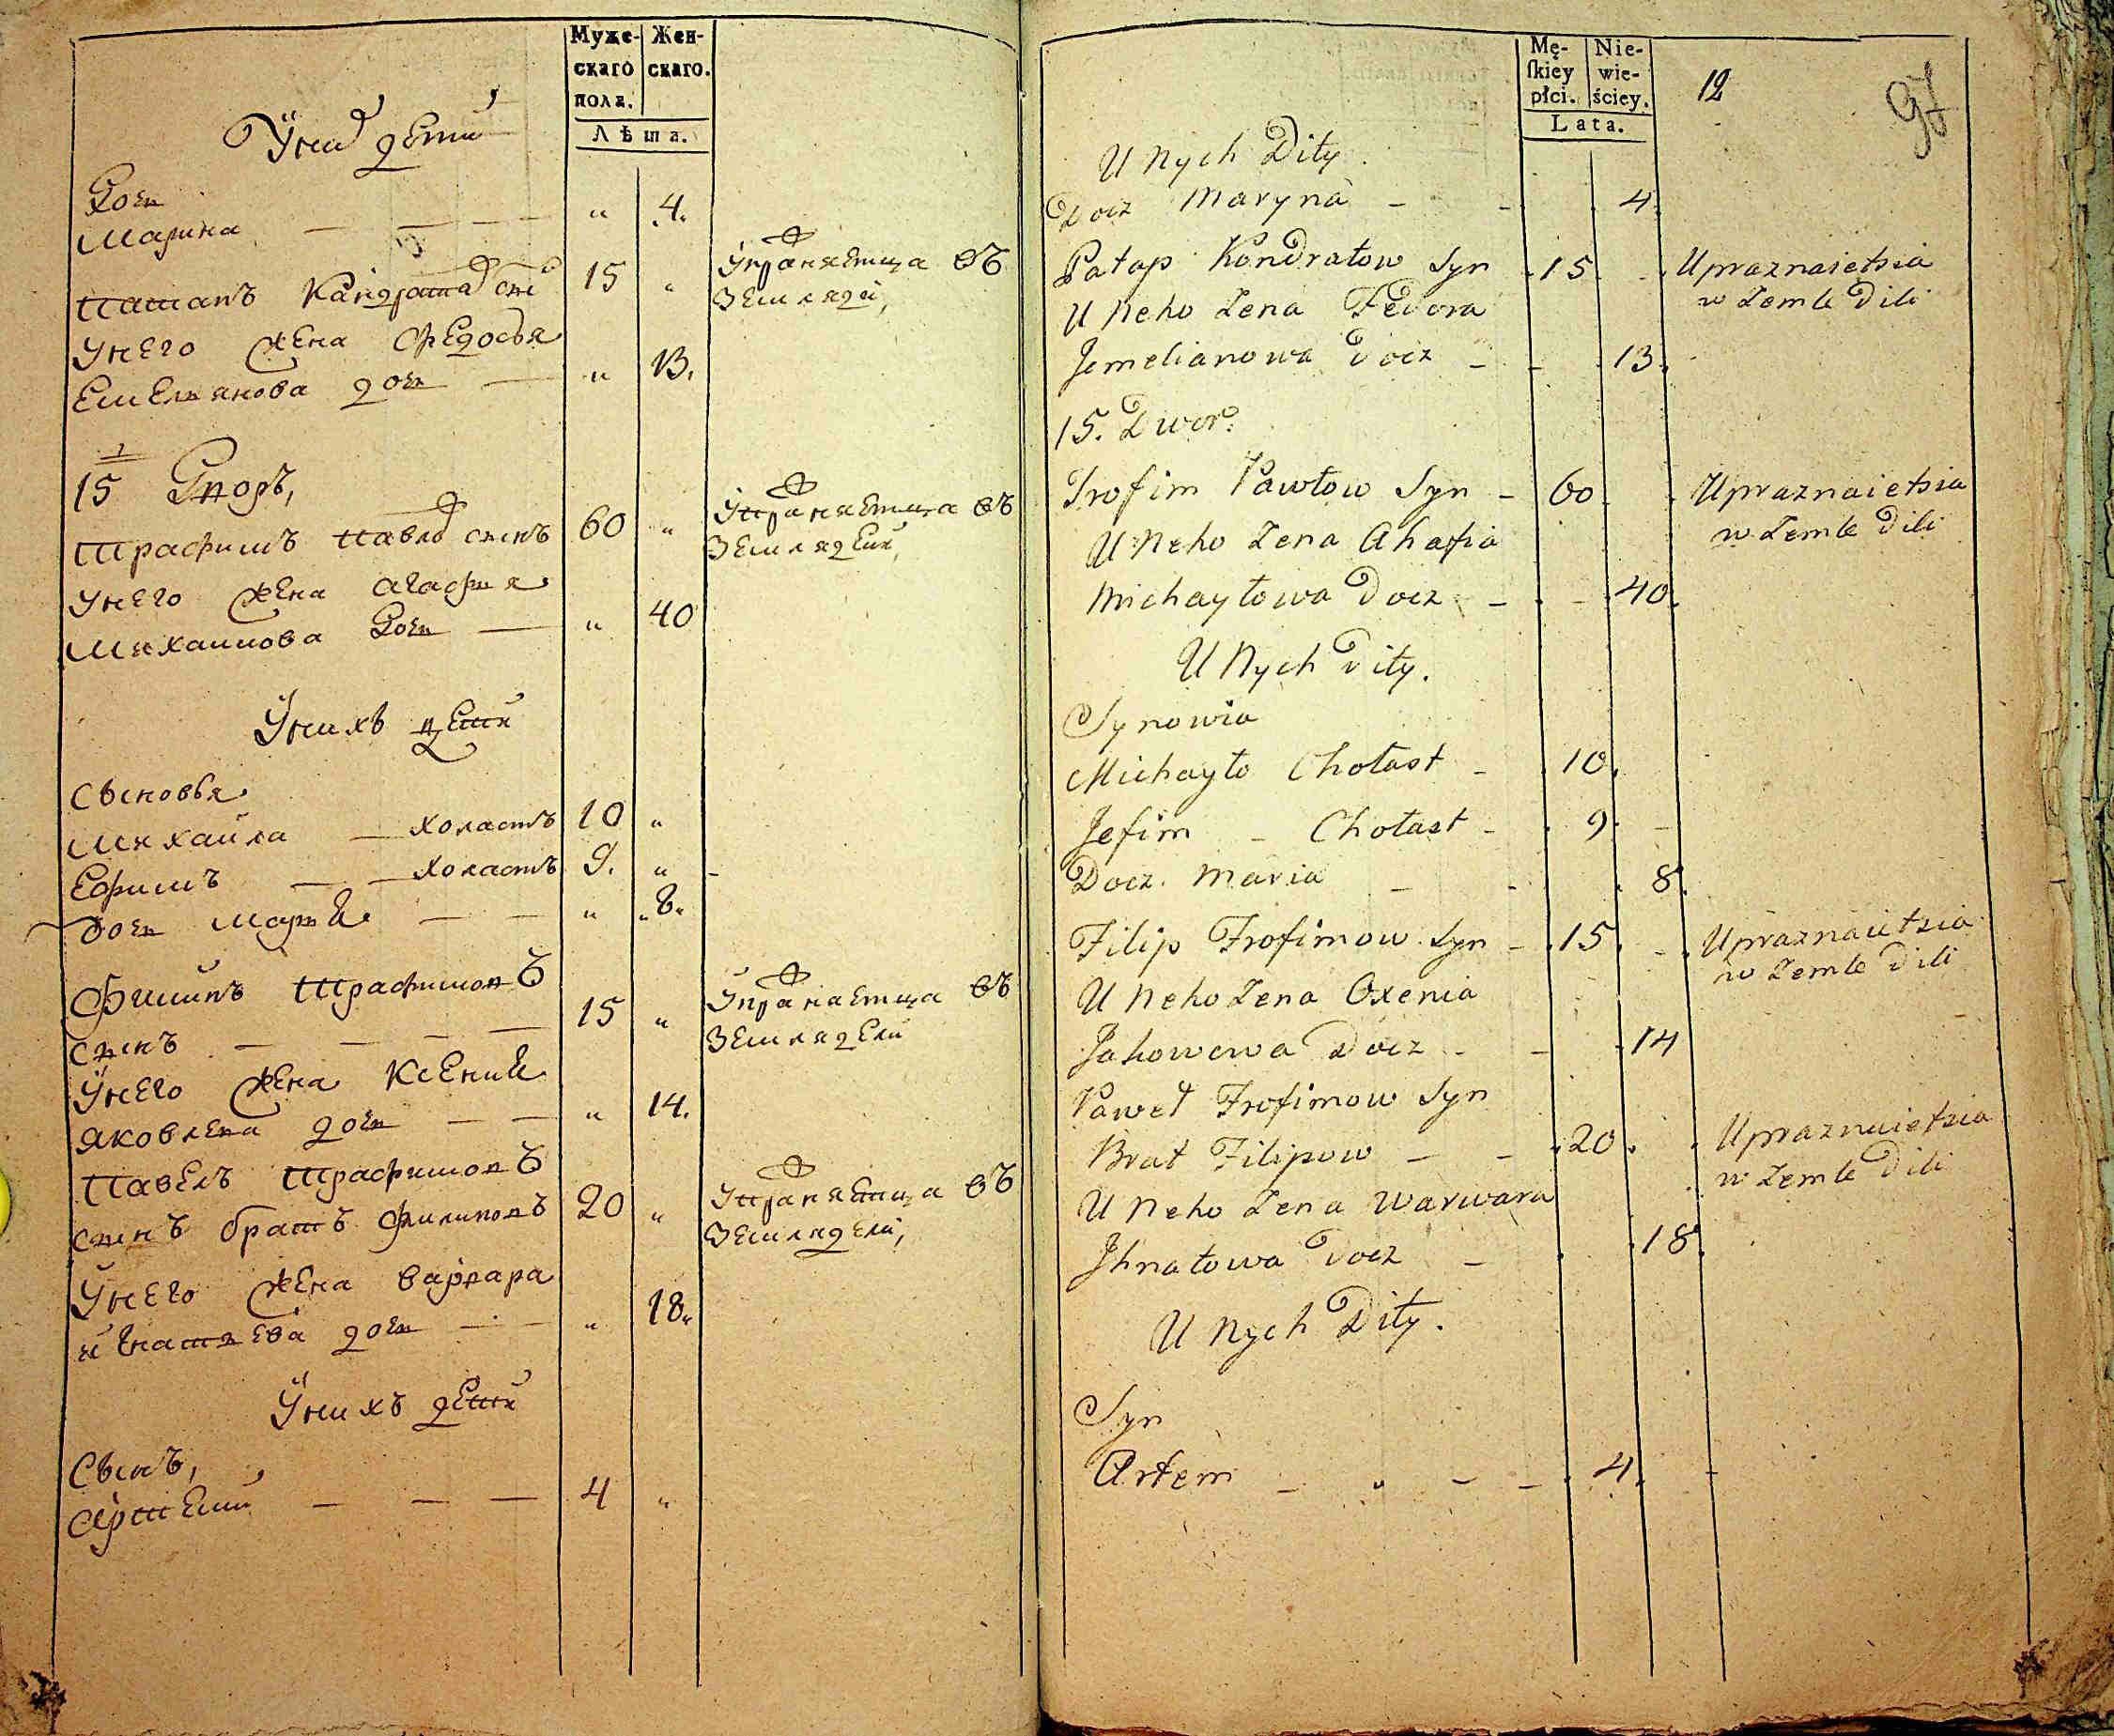 Муже-
скаго
пола.
Жен-
скаго.
Лѣта.
У них дети
Доч
Марина 4.
Патапъ Кандратов сн 15 Упражняетца въ
земледели,
у него жена Федосья
Емельянова доч 13.
15 Дворъ,
Трафимъ Павлов сынъ 60 Упражняетца въ
земледели,
у него жена Агафия
Михаилова доч 40
У нихъ дети
Сыновья
Михаила холастъ 10
Ефимъ холастъ 9.
доч Мария 8.
Филипъ Трафимовъ
сынъ 15 Упражняетца въ
земледели
У него жена Ксения
Яковлева доч 14.
Павелъ Трафимовъ
сынъ братъ Филиповъ 20 Упражняетца въ
земледели,
У него жена Варвара
Игнатьева доч 18.
У нихъ дети
Сынъ,
Артемий 4
Mę-
skiey
płci.
Nie-
wie-
ściey.
Lata.
12
97
U Nych Dity.
Docz Maryna 4.
Patap Kondratow Syn 15 Upraznaietsia
w Zemle Dili
U Neho Zena Fedora
Jemelianowa Docz 13.
15. Dwor.
Trofim Pawłow Syn 60 Upraznaietsia
w Zemle Dili
U Neho Zena Ahafia
Michayłowa Docz 40.
U Nych Dity.
Synowia
Michayło Chołast 10.
Jefim Chołast 9.
Docz Maria 8.
Filip Trofimow Syn 15. Upraznaietsia
w Zemle Dili
U Neho Zena Oxenia
Jakowewa Docz 14
Paweł Trofimow Syn
Brat Filipow 20. Upraznaietsia
w Zemle Dili
U Neho Zena Warwara
Jhnatowa Docz 18.
U Nych Dity.
Syn
Artem 4.